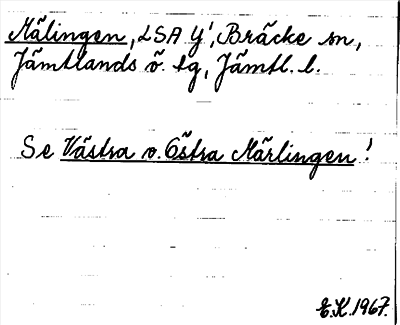 Mälingen, LSA Y', Bräcke sn,
Jämtlands ö. tg, Jämtl. l.
Se Västra o. Östra Märlingen!
E.K. 1967.